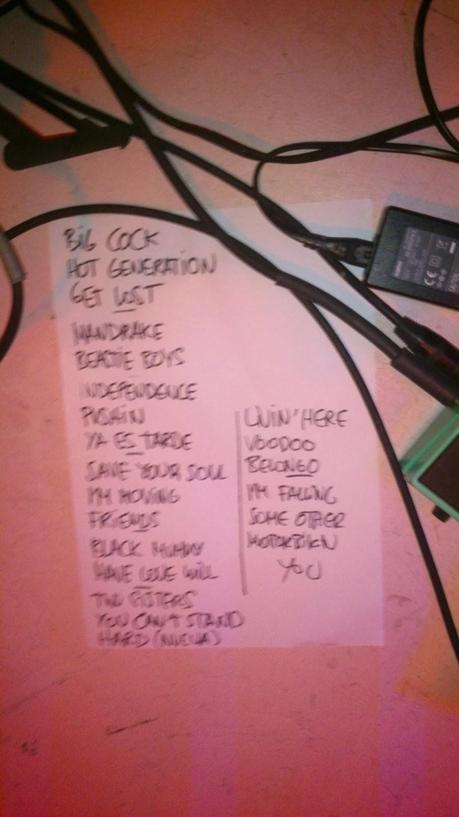 BIG COCK
HOT GENERATION
GET LOST
MANDRAKE
BEASTIE BOYS
INDEPENDENCE
PUSHIN
YA ES TARDE
SAVE YOUR SOUL
I'M MOVING
FRIENDS
BLACK MUMMY
HAVE LOVE WILL
TWO SISTERS
YOU CAN'T STAND
HARD (NUEVA)
LIVIN' HERE
VOODOO
BELONGO
I'M FALLING
SOME OTHER
YOU